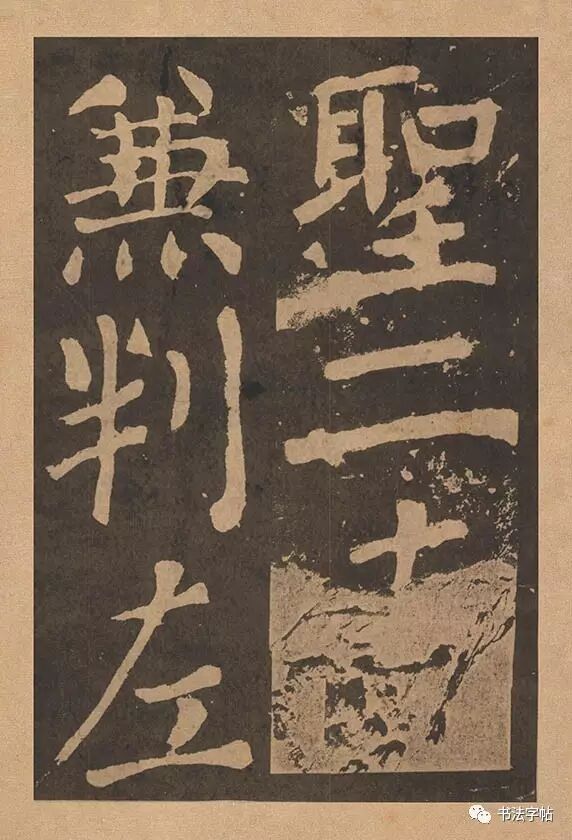 聖二十
兼判左
书法字帖